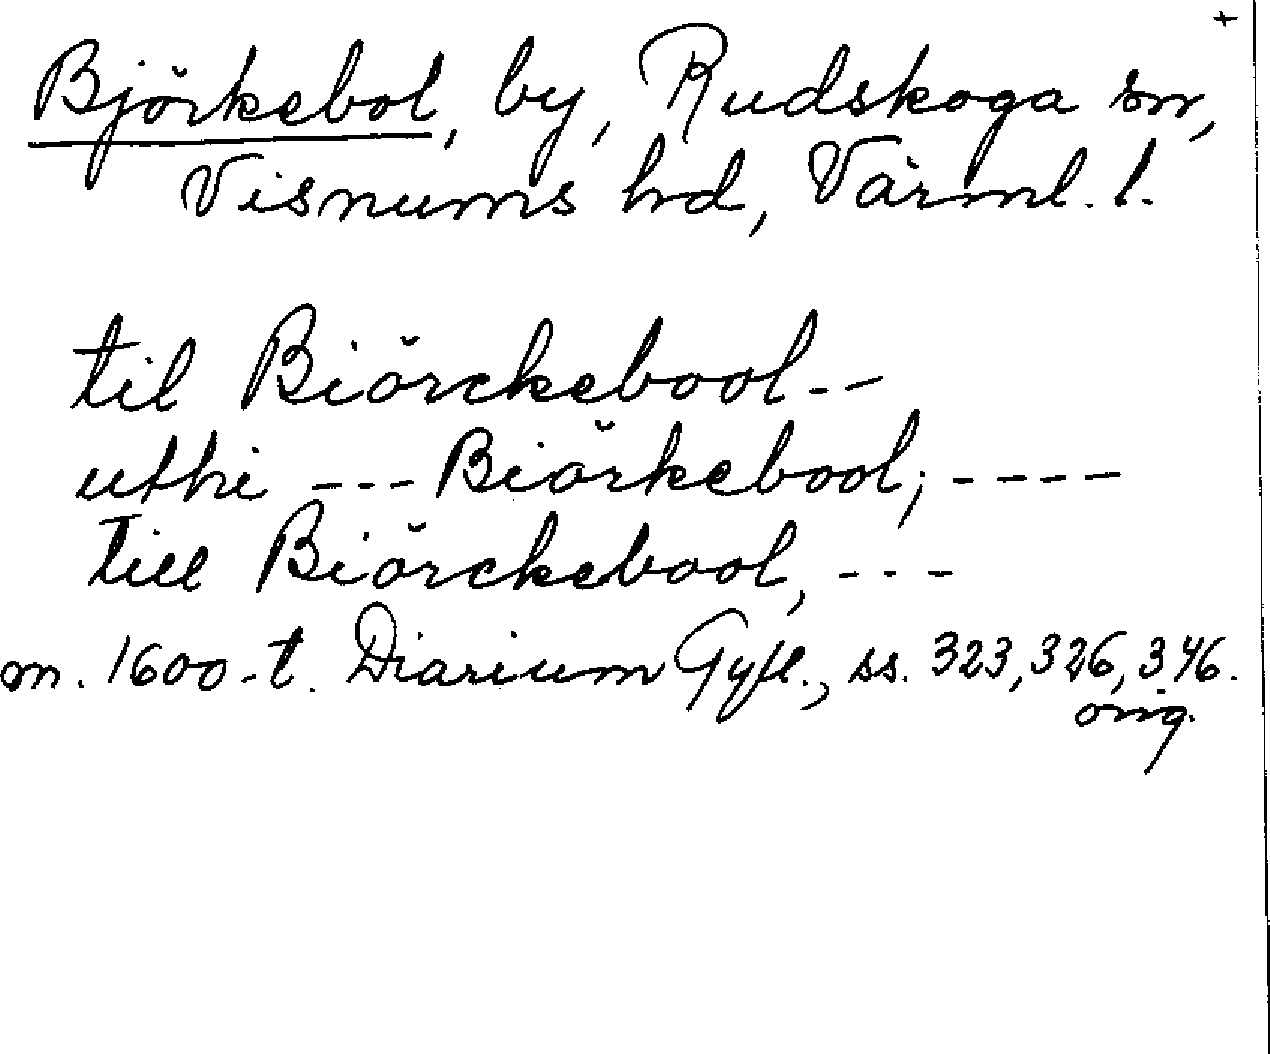 +
Björkebol, by, Rudskoga sn,
Visnums hd, Värml. l.
til Biörckebool---
uthi --- Biörkebool; ----
till Biörckebool, ---
m. 1600-t. Diarium Gyll., ss. 323, 326, 346.
orig.